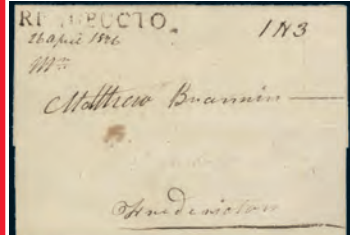 RI IBUCCTO. 1N3
26 April 1826
Mr
Matthew Brannin
Fredericton